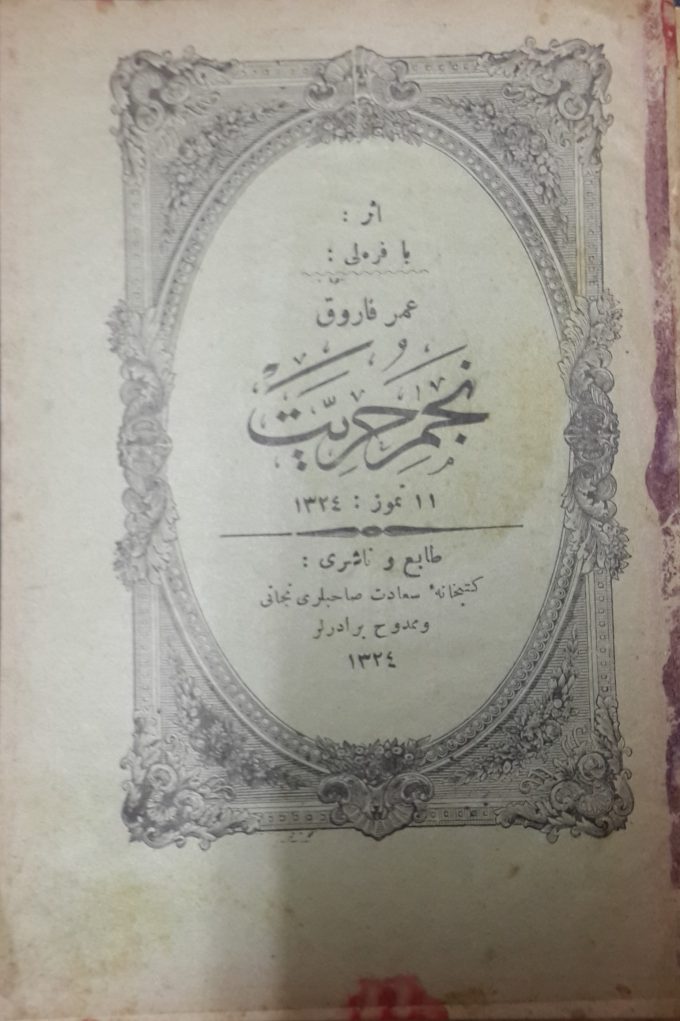 اثر :
بافره‌لی :
عمر فاروق
نجم حُرِّيَت
١١ تموز : ١٣٢٤
طابع و ناشری :
كتبخانهٔ سعادت صاحبلری نجاتی
وممدوح برادرلر
١٣٢٤